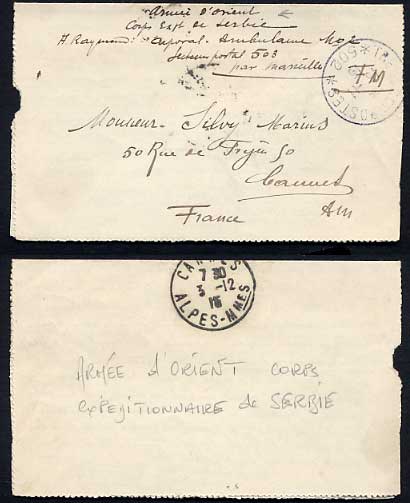 Armée d'orient
Corps Expt de Serbie
A Raymond Caporal. Ambulance No 2
Secteur postal 503
par Marseille
POSTES * 502
FM
Monsieur Silvy Marius
50 Rue de Fréjus 50
Cannes
France AM
CANNES
7 30
3 -12
15
ALPES-MMES
ARMÉE d'ORIENT CORPS
EXPEDITIONNAIRE de SERBIE